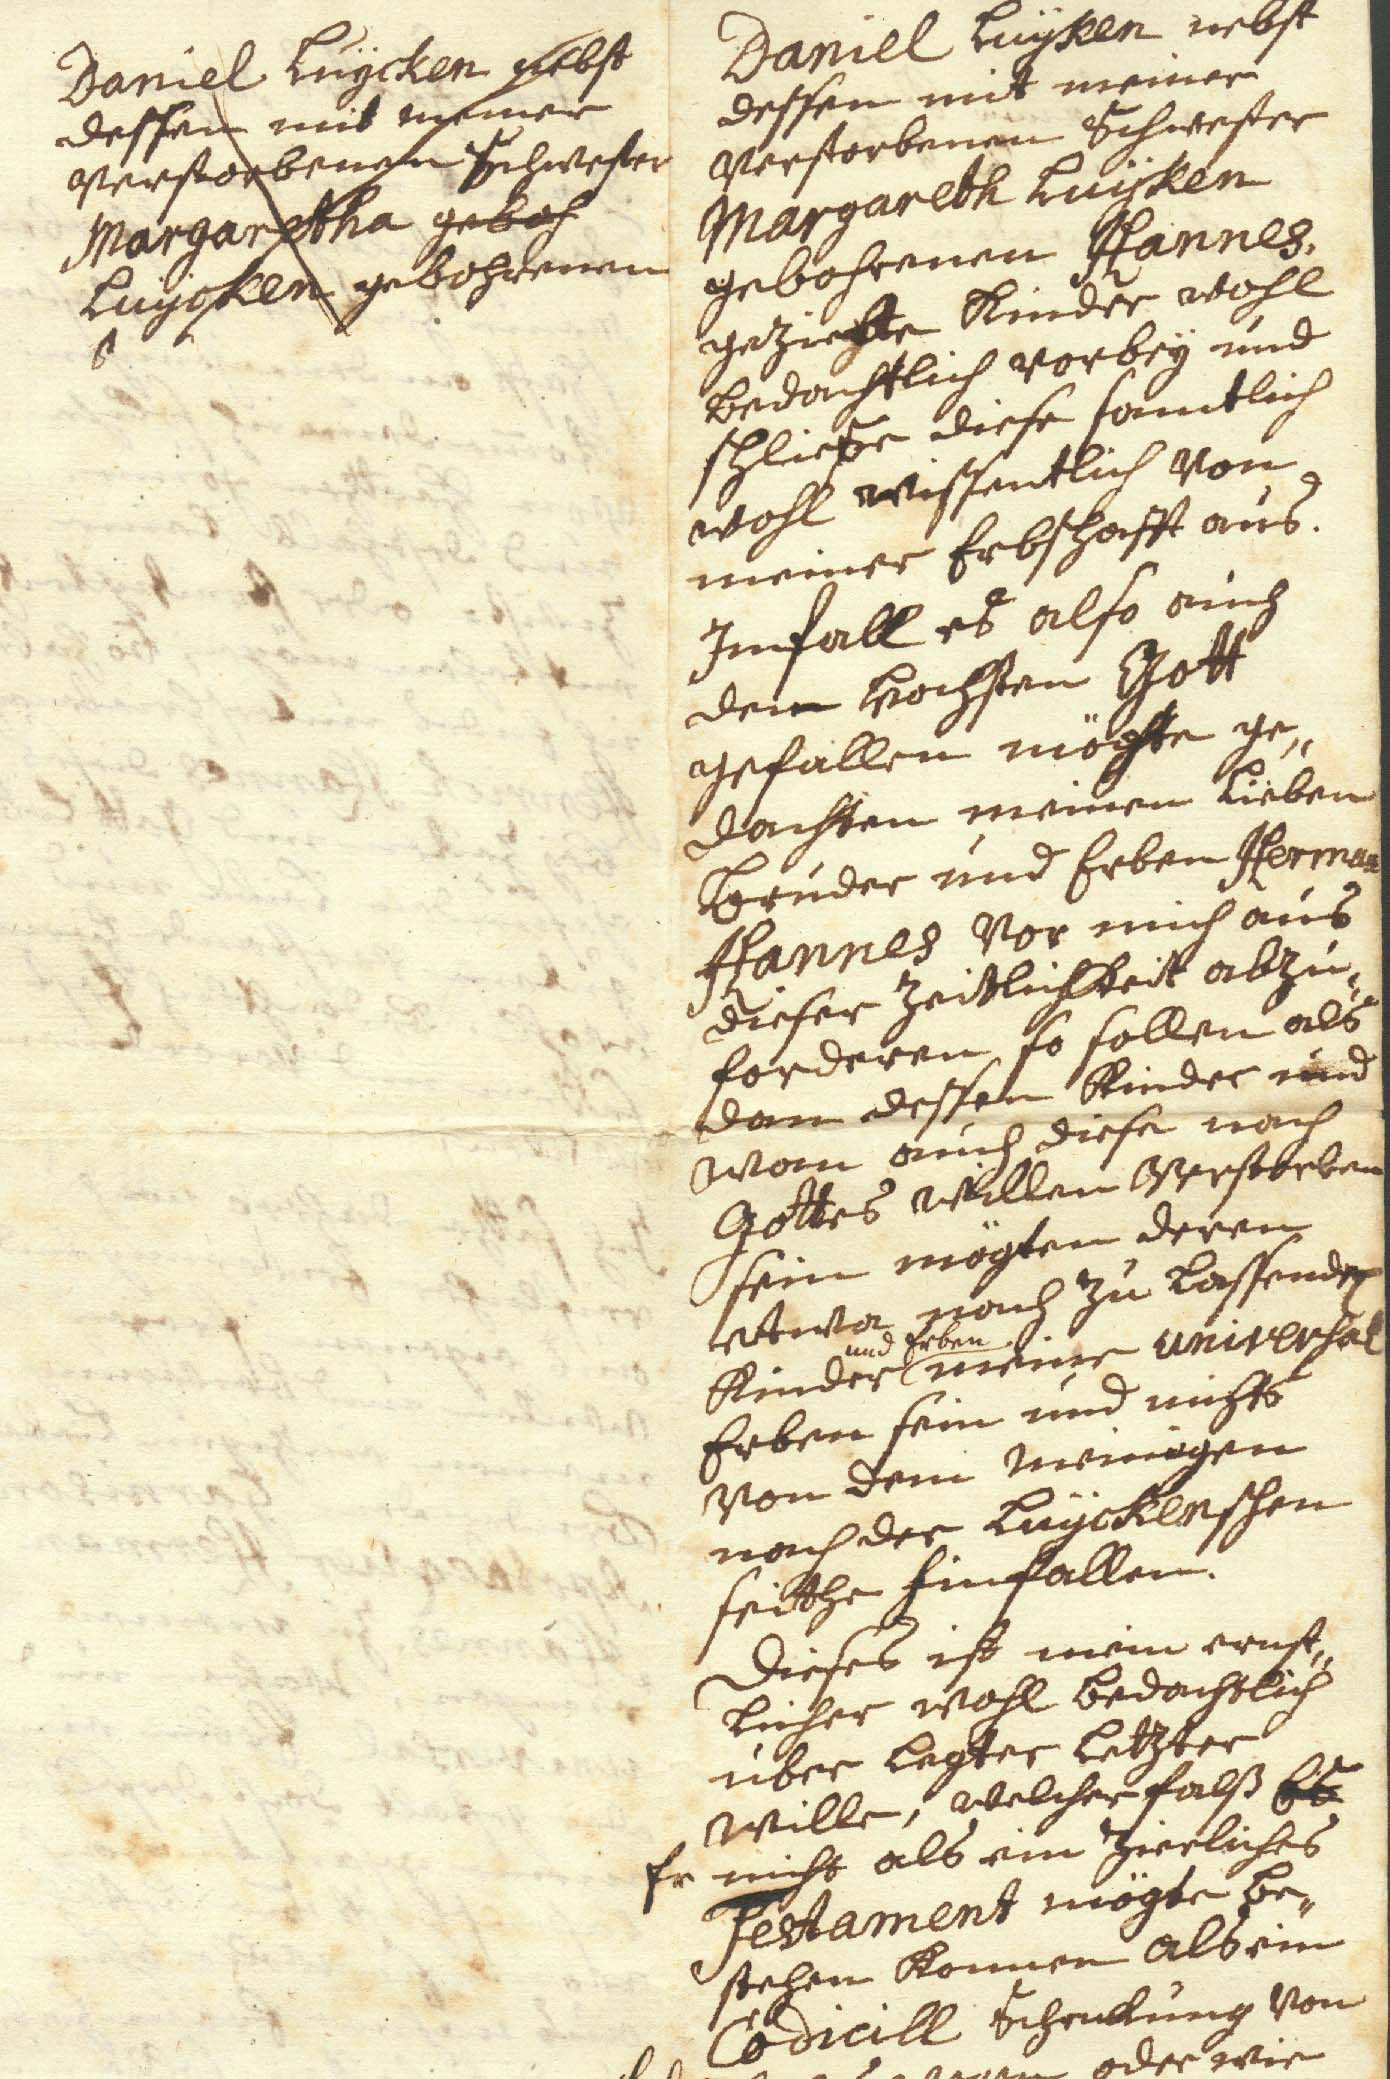 Daniel Luÿcken nebst
dessen mit meiner
verstorbenen Schwester
Margaretha geboh
Luÿcken gebohrenen
Daniel Luÿken nebst
dessen mit meiner
verstorbenen Schwester
Margareth Luÿken
gebohrenen Hannes.
geziehlte Kinder wohl
bedachtlich vorbeÿ und
schließe diese samtlich
wohl wissentlich von
meiner Erbschafft aus.
Imfall es also auch
dem hochsten Gott
gefallen mögte ge„
dachten meinen lieben
Bruder und Erben Herman
Hannes vor mich aus
dieser Zeitlichkeit abzu„
forderen, so sollen als
dan dessen Kinder und
wan auch diese nach
Gottes willen verstorben
sein mögten deren
etwa nach zu lassende
und Erben
Kinder meine universal
Erben sein und nichts
von dem meinigen
nach der Luÿckenschen
seithe hinfallen.
Dieses ist mein ernst„
licher wohl bedachtlich
über legter letzter
wille, welcher falß Es
Er nicht als ein zierliches
Testament mögte be„
stehen konnen als ein
Codicill Schenkung von
oder wie